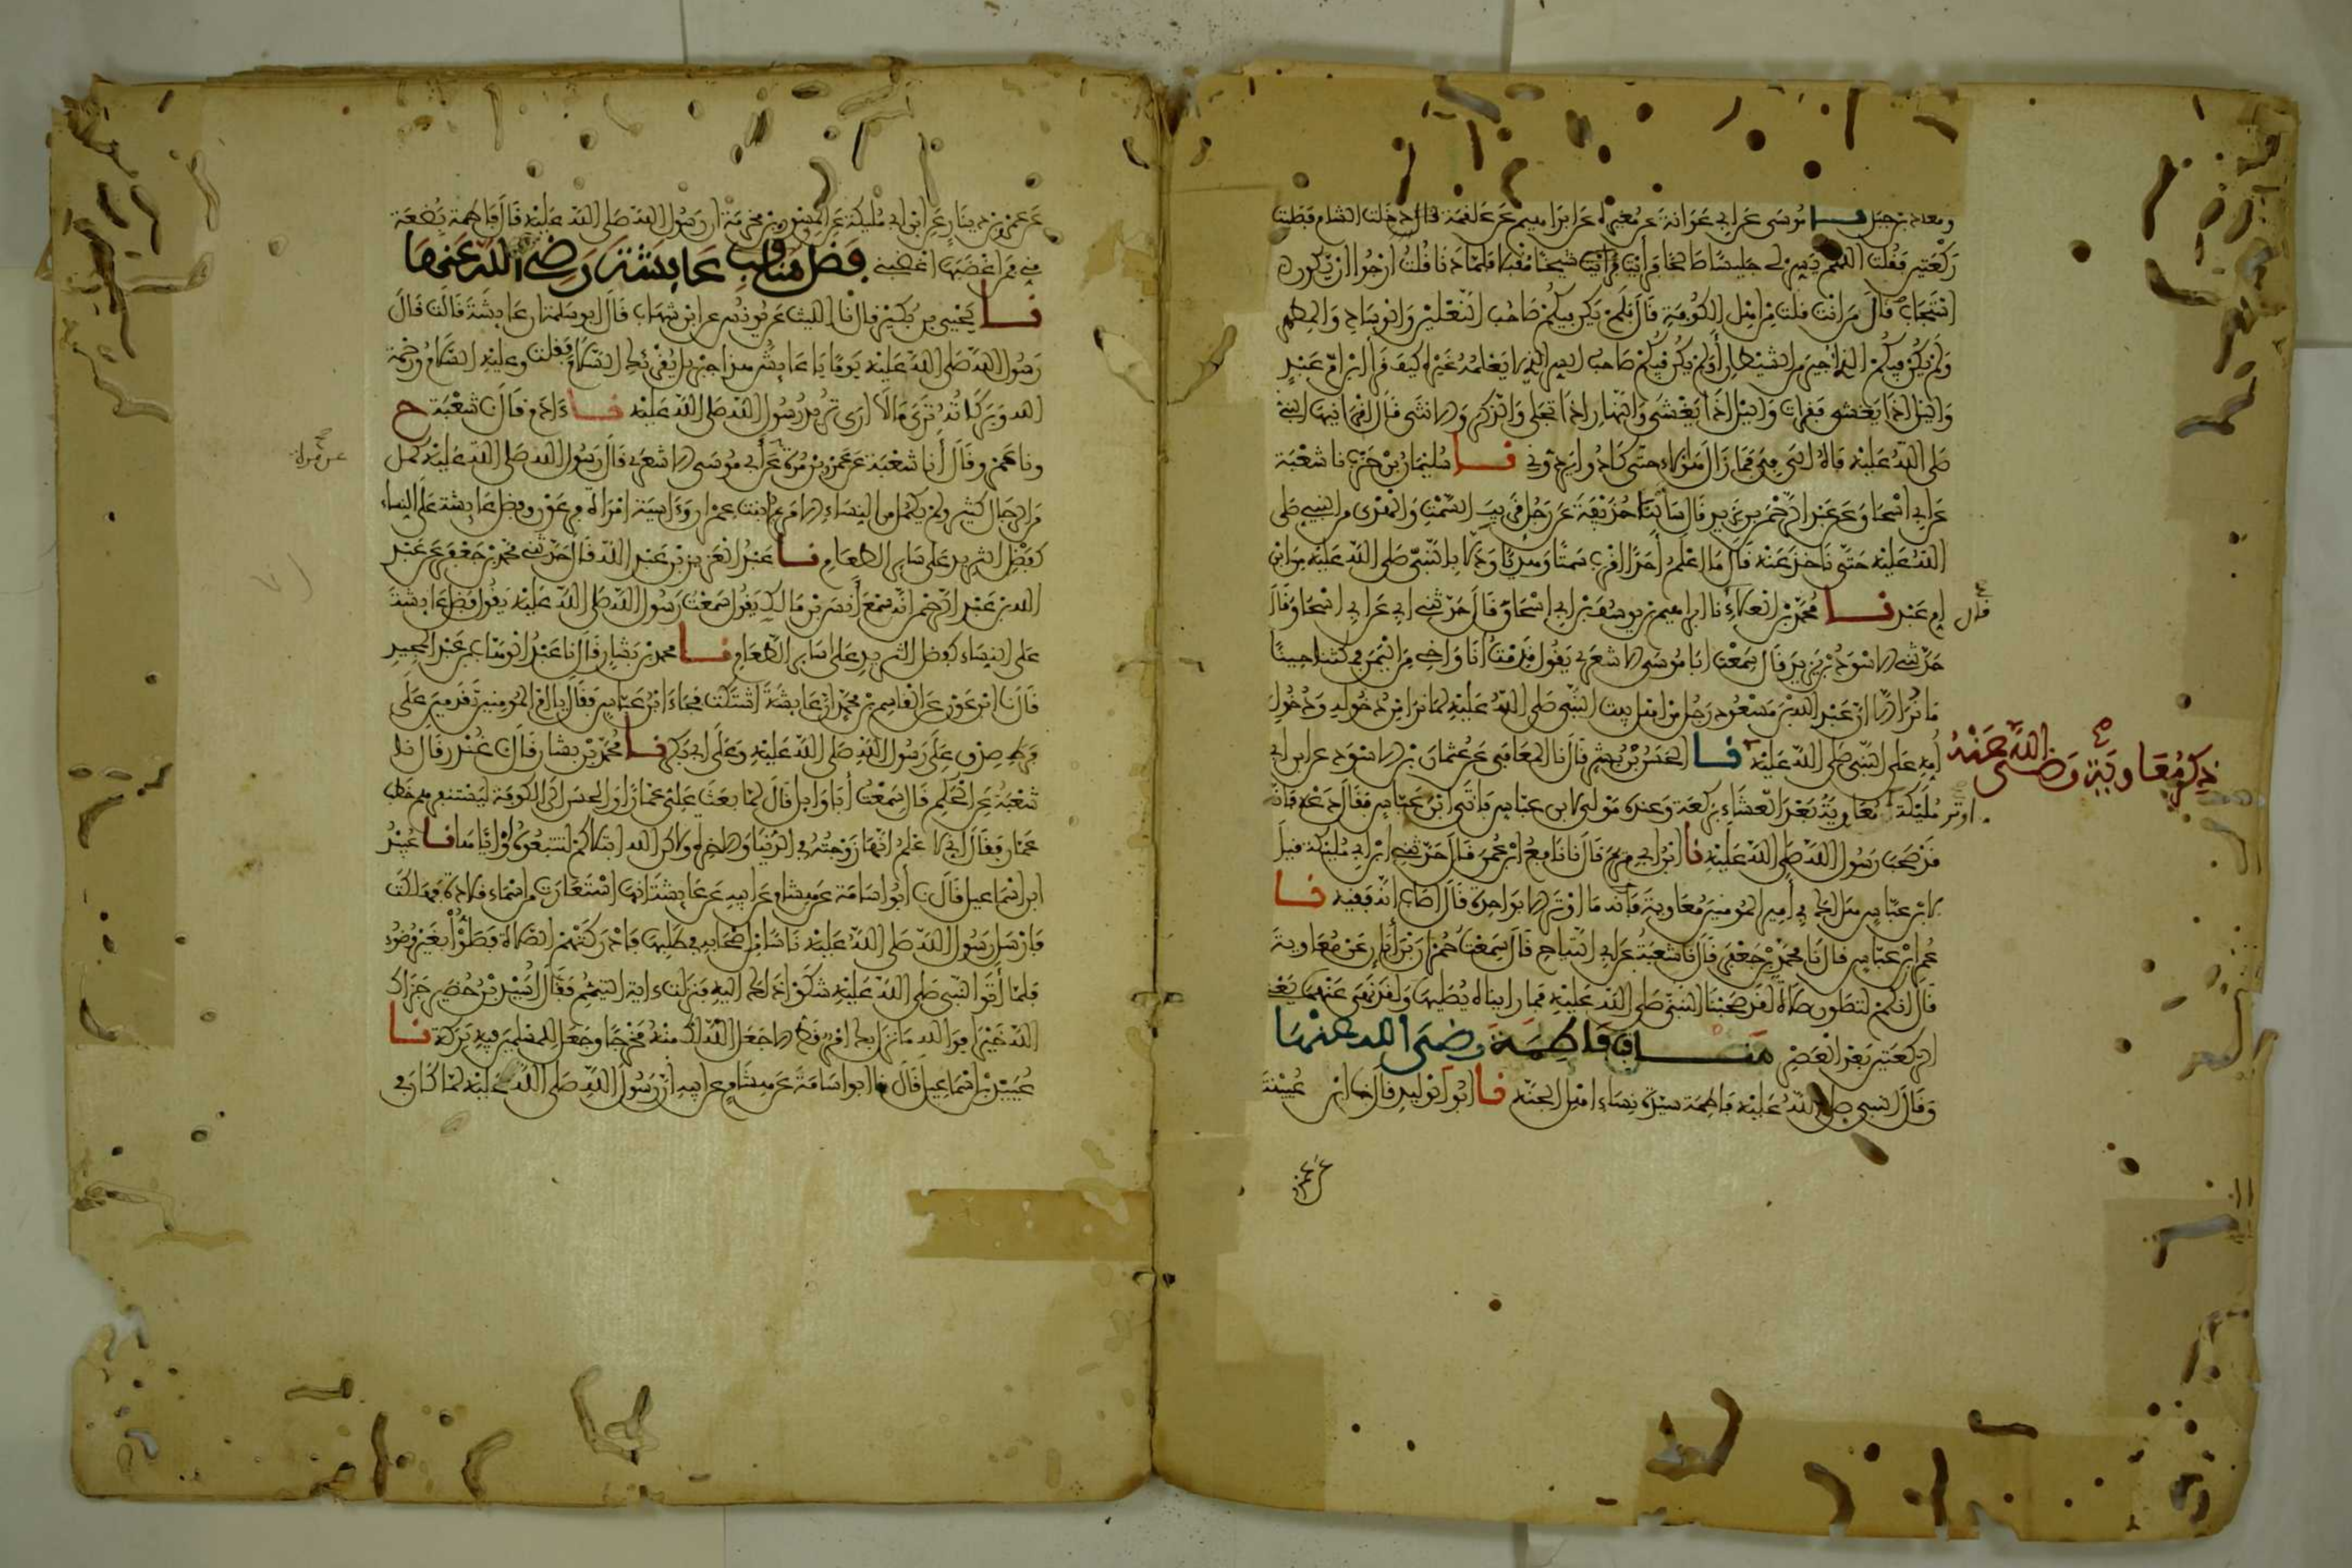 ومعاذ بن جبل نا موسى عن ابي عوانة عن مغيرة عن ابراهيم عن علقمة قال دخلت الشام فصليت
ركعتين فقلت اللهم يسر لي جليسا صالحا فرايت شيخا مقبلا فلما دنا قلت ارجو ان يكون
استجاب قال من انت قلت من اهل الكوفة قال افلم يكن فيكم صاحب النعلين والوساد والمطهرة
ولم يكن فيكم الذي اجير من الشيطان اولم يكن فيكم صاحب السر الذي لا يعلمه غيره كيف قرا ابن ام عبد
واليل اذا يغشى فقرات واليل اذا يغشى والنهار اذا تجلى والذكر والانثى قال اقرانيها النبي
صلى الله عليه فاه الى في فما زال هؤلاء حتى كادوا يردوني نا سليمان بن حرب نا شعبة
عن ابي اسحاق عن عبد الرحمن بن يزيد قال سالنا حذيفة عن رجل قريب السمت والهدي من النبي صلى
الله عليه حتى ناخذ عنه قال ما اعلم احدا اقرب سمتا وهديا ودلا بالنبي صلى الله عليه من ابن
ام عبد نا محمد بن العلاء نا ابراهيم بن يوسف بن ابي اسحاق قال حدثني ابي عن ابي اسحاق قال
قال
حدثني الاسود بن يزيد قال سمعت ابا موسى الاشعري يقول قدمت انا واخي من اليمن فمكثنا حينا
ما نرى الا ان عبد الله بن مسعود رجل من اهل بيت النبي صلى الله عليه لما نرى من دخوله ودخول
امه على النبي صلى الله عليه نا الحسن بن بشر قال نا المعافى عن عثمان بن الاسود عن ابن ابي
ذكر معاوية رضي الله عنه
مليكة اوتر معاوية بعد العشاء بركعة وعنده مولى لابن عباس فاتى ابن عباس فقال دعه فانه
قد صحب رسول الله صلى الله عليه نا ابن ابي مريم قال نا نافع بن عمر قال حدثني ابن ابي مليكة قيل
لابن عباس هل لك في امير المومنين معاوية فانه ما اوتر الا بواحدة قال اصاب انه فقيه نا
عمرو بن عباس قال نا محمد بن جعفر قال نا شعبة عن ابي التياح قال سمعت حمران بن ابان عن معاوية
قال انكم لتصلون صلاة لقد صحبنا النبي صلى الله عليه فما رايناه يصليها ولقد نهى عنهما يعني
الركعتين بعد العصر مناقب فاطمة رضي الله عنها
وقال النبي صلى الله عليه فاطمة سيدة نساء اهل الجنة نا ابو الوليد قال نا ابن عيينة
عن عمرو
عن عمرو بن دينار عن ابن ابي مليكة عن المسور بن مخرمة ان رسول الله صلى الله عليه قال فاطمة بضعة
مني فمن اغضبها اغضبني فضل مناقب عايشة رضي الله عنها
نا يحيى بن بكير قال نا الليث عن يونس عن ابن شهاب قال ابو سلمة ان عايشة قالت قال
رسول الله صلى الله عليه يوما يا عايش هذا جبريل يقرئك السلام فقلت وعليه السلام ورحمة
الله وبركاته ترى ما لا ارى تريد رسول الله صلى الله عليه نا ءادم قال نا شعبة ح
ونا عمرو قال انا شعبة عن عمرو بن مرة عن ابي موسى الاشعري قال رسول الله صلى الله عليه كمل
عن مرة
من الرجال كثير ولم يكمل من النساء الا مريم ابنت عمران وءاسية امراة فرعون وفضل عايشة على النساء
كفضل الثريد على ساير الطعام نا عبد العزيز بن عبد الله قال حدثني محمد بن جعفر عن عبد
الله بن عبد الرحمن انه سمع انس بن مالك يقول سمعت رسول الله صلى الله عليه يقول فضل عايشة
على النساء كفضل الثريد على ساير الطعام نا محمد بن بشار قال نا عبد الوهاب بن عبد المجيد
قال نا ابن عون عن القاسم بن محمد ان عايشة اشتكت فجاء ابن عباس فقال يا ام المومنين تقدمين على
فرط صدق على رسول الله صلى الله عليه وعلى ابي بكر نا محمد بن بشار قال نا غندر قال نا
شعبة عن الحكم قال سمعت ابا وايل قال لما بعث علي عمارا والحسن الى الكوفة ليستنفرهم خطب
عمار فقال اني لاعلم انها زوجته في الدنيا والاخرة ولكن الله ابتلاكم لتتبعوه او اياها نا عبيد
ابن اسماعيل قال نا ابو اسامة عن هشام عن ابيه عن عايشة انها استعارت من اسماء قلادة فهلكت
فارسل رسول الله صلى الله عليه ناسا من اصحابه في طلبها فادركتهم الصلاة فصلوا بغير وضوء
فلما اتوا النبي صلى الله عليه شكوا ذلك اليه فنزلت ءاية التيمم فقال اسيد بن حضير جزاك
الله خيرا فوالله ما نزل بك امر قط الا جعل الله لك منه مخرجا وجعل للمسلمين فيه بركة نا
عبيد بن اسماعيل قال نا ابو اسامة عن هشام عن ابيه ان رسول الله صلى الله عليه لما كان في